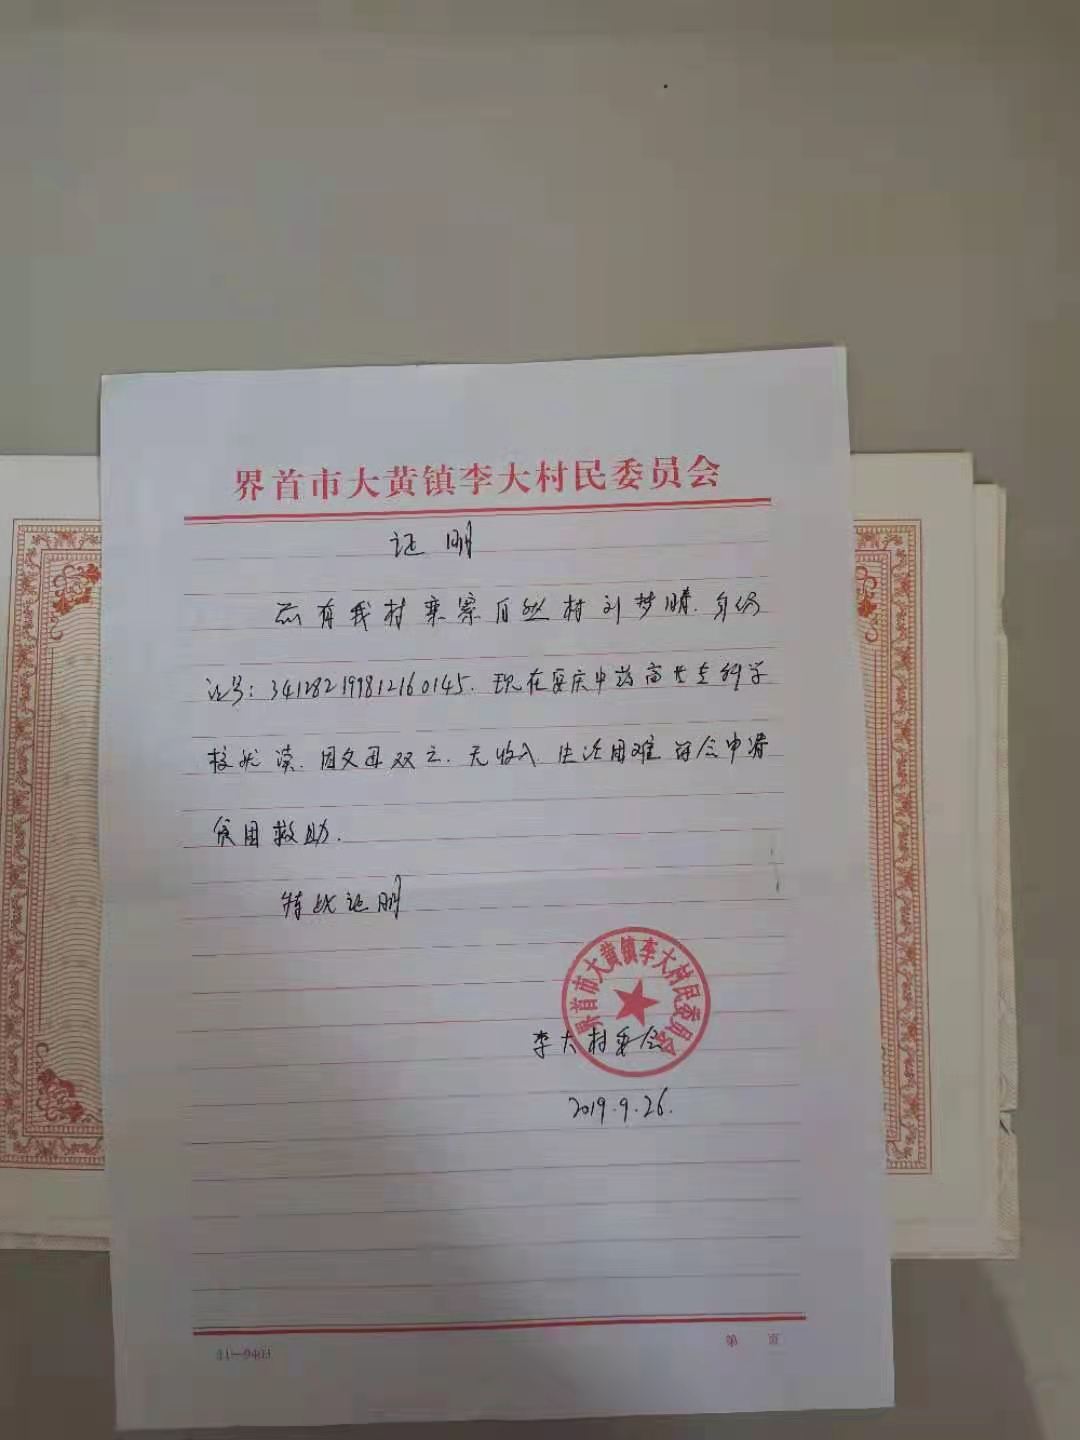 界首市大黄镇李大村民委员会
证明
兹有我村栾寨自然村刘梦晴.身份
证号:341282199812160145.现在安庆中药高等专科学
校就读.因父母双亡.无收入.生活困难 符合申请
贫困救助.
特此证明
界首市大黄镇李大村民委员会
李大村委会
2019.9.26.
第 页